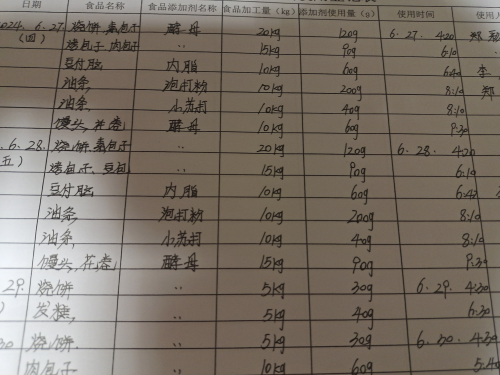 日期 食品名称 食品添加剂名称 食品加工量(kg) 添加剂使用量(g) 使用时间 使用人
2024.6.27. 烧饼.素包子 酵母 20kg 120g 6.27. 4:20
(四) 烫包子、肉包子 〃 15kg 90g 6:10
豆付脑 内脂 10kg 60g 6:40 李
油条 泡打粉 10kg 200g 8:10 郑
油条 小苏打 10kg 40g 8:10
馒头、花卷 酵母 10kg 60g 9:30
.6.28. 烧饼.素包子 〃 20kg 120g 6.28. 4:20
五) 烫包子、豆包 〃 15kg 90g 6:10
豆付脑 内脂 10kg 60g 6:40
油条 泡打粉 10kg 200g 8:10
油条, 小苏打 10kg 40g 8:10
馒头,花卷 酵母 15kg 90g 9:30
29. 烧饼 〃 5kg 30g 6.29. 4:30
发糕, 〃 5kg 40g 6:30
30 烧饼. 〃 5kg 30g 6.30. 4:30
肉包子 10kg 60g 5:40